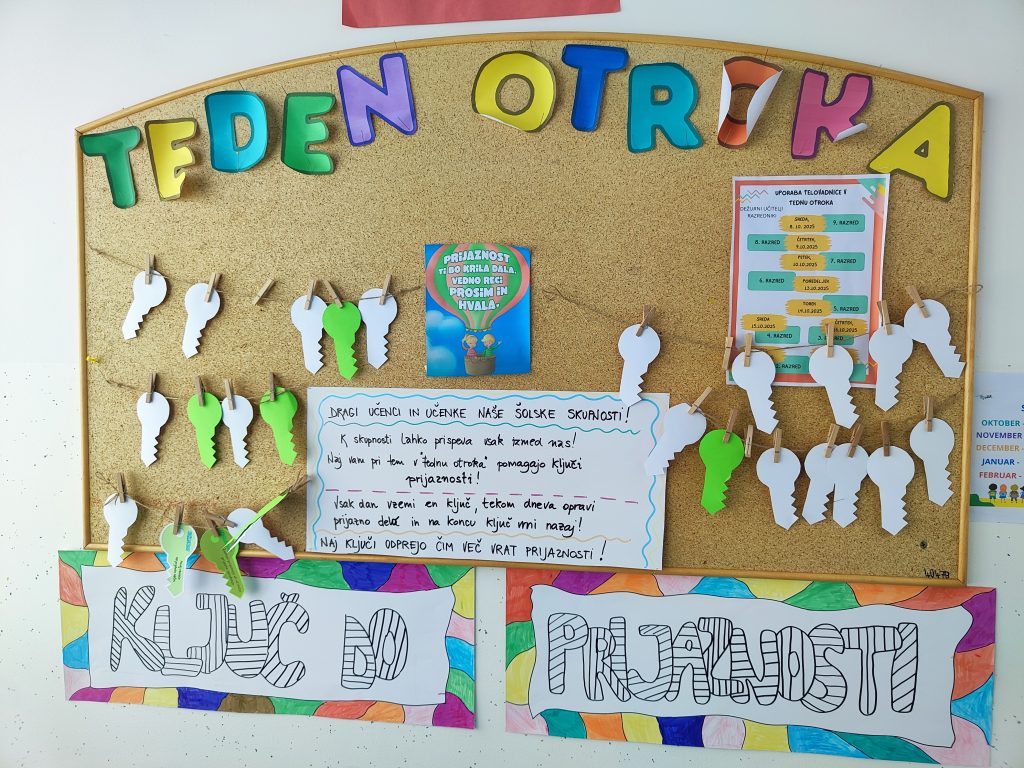 TEDEN OTROKA
UPORABA TELOVADNICE V
TEDNU OTROKA
DEŽURNI UČITELJI
RAZREDNIKI
SREDA,
8. 10. 2025
9. RAZRED
8. RAZRED
ČETRTEK,
9.10.2025
PETEK,
10.10.2025
7. RAZRED
6. RAZRED
PONEDELJEK
13.10.2025
TOREK
14.10.2025
5. RAZRED
SREDA
15.10.2025
4. RAZRED
3.
RAZRED
PRIJAZNOST
TI BO KRILA DALA,
VEDNO RECI
PROSIM IN
HVALA.
DRAGI UČENCI IN UČENKE NAŠE ŠOLSKE SKUPNOSTI!
K skupnosti lahko prispeva vsak izmed nas!
Naj vam pri tem v "tednu otroka" pomagajo ključi
prijaznosti!
Vsak dan vzemi en ključ, tekom dneva opravi
prijazno delo in na koncu ključ vrni nazaj!
NAJ KLJUČI ODPREJO ČIM VEČ VRAT PRIJAZNOSTI!
OKTOBER -
NOVEMBER
DECEMBER -
JANUAR -
FEBRUAR -
40479
KLJUČ DO
PRIJAZNOSTI